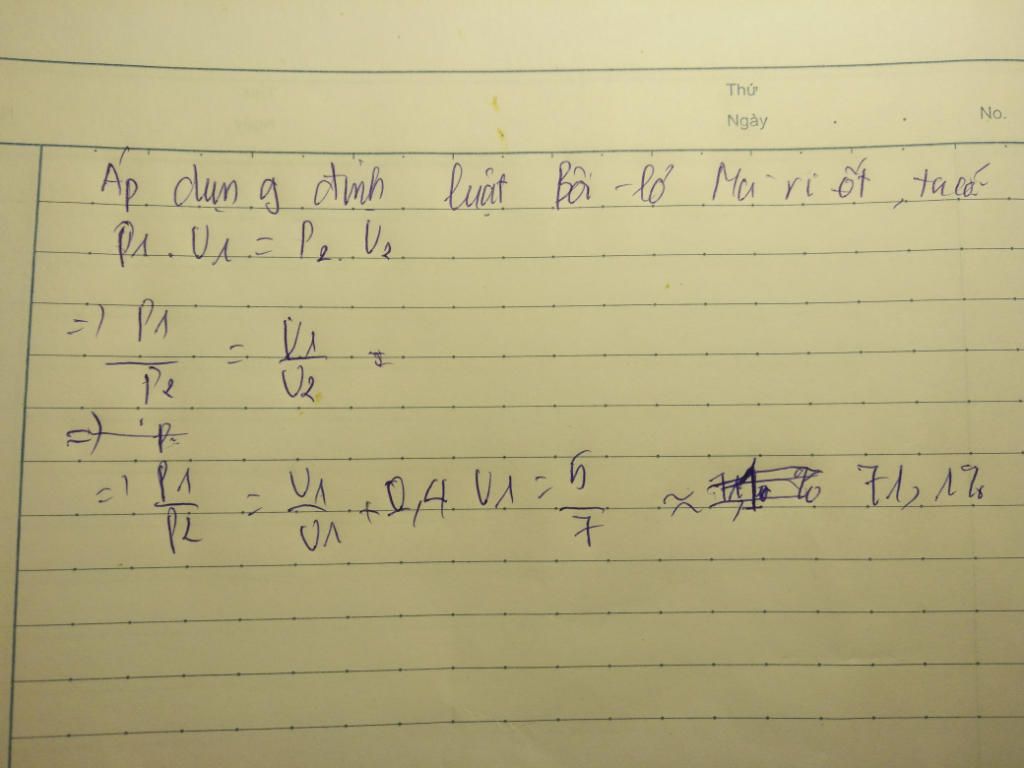 Thứ
Ngày . . No.
Áp dụng định luật Bôi-lơ Ma-ri ốt, ta có
P1 . V1 = P2 . V2
=> P1/P2 = V1/V2 =
=> P
=> P1/P2 = V1/V1 + 0,4 V1 = 5/7 ≈ 71,1%